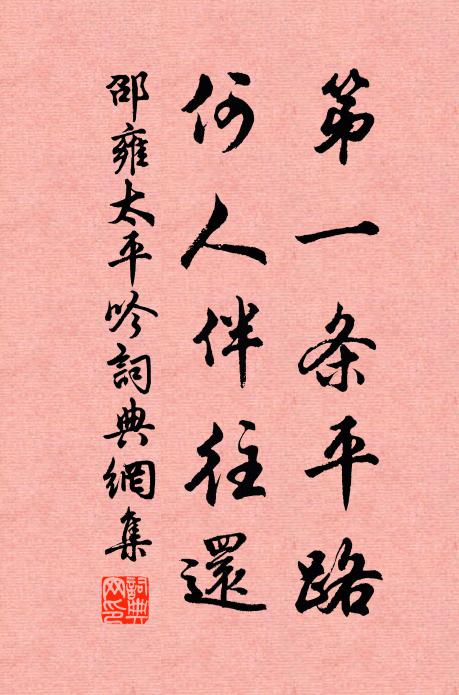 第一条平路
何人伴往還
邵雍太平吟詞典網集
詞典
网印